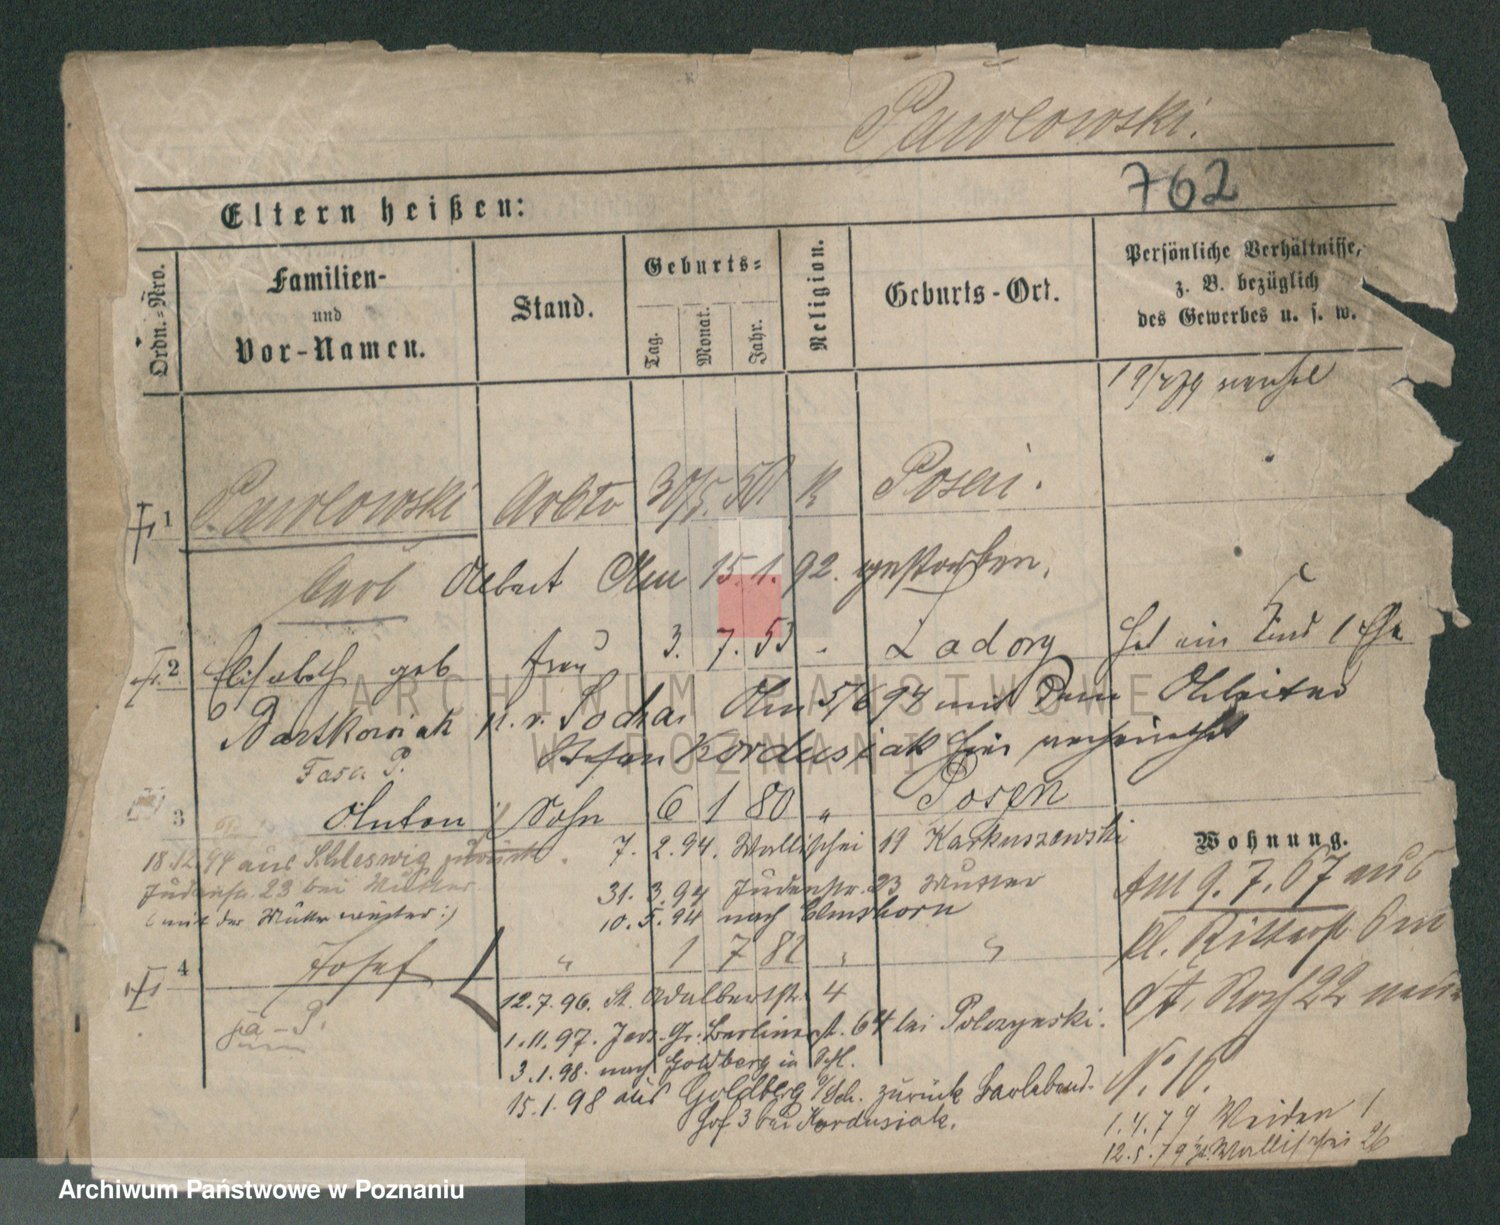 Pawlowski.
762
Eltern heißen:
Ordn.-Nro.
Familien- und Vor-Namen.
Stand.
Geburts-
Tag. Monat. Jahr.
Religion.
Geburts-Ort.
Persönliche Verhältnisse,
z. B. bezüglich
des Gewerbes u. s. w.
1 Pawlowski Arbtr 30/5. 50 K Posen.
Carl Albert Am 15.1.92. gestorben.
2 Elisabeth geb Frau 3. 7. 53 Zadory hat ein Kind 1 Ehe
Bartkowiak Am 5/6 94 mit dem Arbeiter
Stefan Kordusiak hier verheirathet
3 Anton Sohn 6 1 80 " Posen
7. 2.94. Wallischei 19 Karkuszewski
18.12.94 aus Schleswig zurück.
Judenstr. 23 bei Mutter
31. 3.94 Judenstr. 23 Mutter
10.5.94 nach Elmshorn
4 Josef " 1 7 82 " "
12.7.96. St. Adalbertstr. 4
1.11.97. Jers. Gr. Berlinerst. 64 bei Polczynski.
3.1.98. nach Goldberg in Schl.
15.1.98 aus Goldberg i/Sch. zurück
hof 3 bei Kordusiak.
Wohnung.
Am 9. 7. 67 aus
kl. Ritterst.
St. Roch 22
No 10.
1.4.79 Weiden 1
12.5.79 Wallischei 26
ARCHIWUM PAŃSTWOWE
W POZNANIU
Archiwum Państwowe w Poznaniu